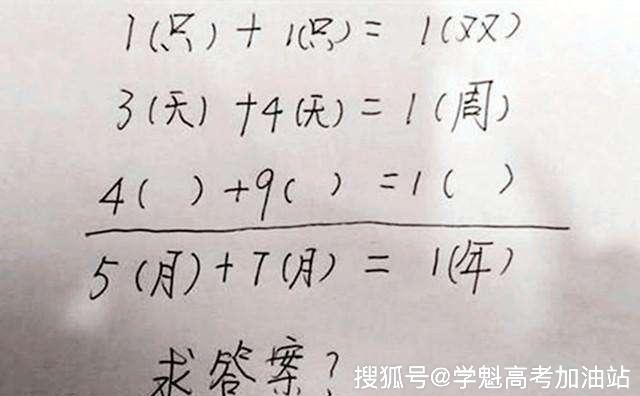 1(只)+1(只)=1(双)
3(天)+4(天)=1(周)
4( )+9( )=1( )
5(月)+7(月)=1(年)
求答案?
搜狐号@学魁高考加油站